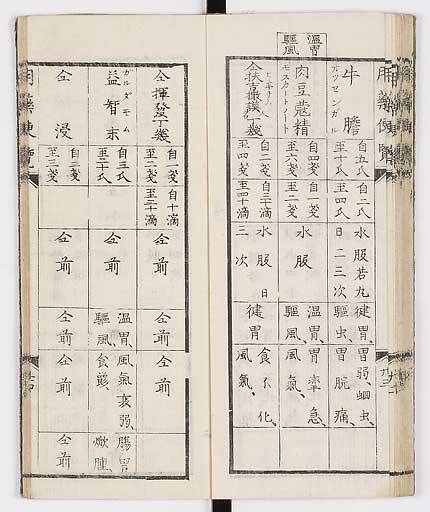 用藥便覽
温胃
驅風
オッセンガル
牛膽
自五氏
至十氏
自二氏
至四氏
水服若丸
日二三次
健胃、
驅虫、
胃弱、蛔虫、
胃脘痛、
モスカートノート
肉豆蔻精
自四戔
至六戔
自一戔
至二戔
水服
温胃、
驅風、
胃攣急
風氣、
自二戔
至四戔
自二十滴
至四十滴
水服 日
三次
健胃、
食不化、
風氣、
仝揮發丁幾
自一戔
至二戔
自十滴
至二十滴
仝前
仝前
仝前
カルダモム
益智末
自五氏
至二十氏
仝前
温胃、
驅風、
風氣衰弱、
食餤、
腸胃
焮腫、
仝浸
自二戔
至三戔
仝前
仝前
仝前
仝前
用藥便覽